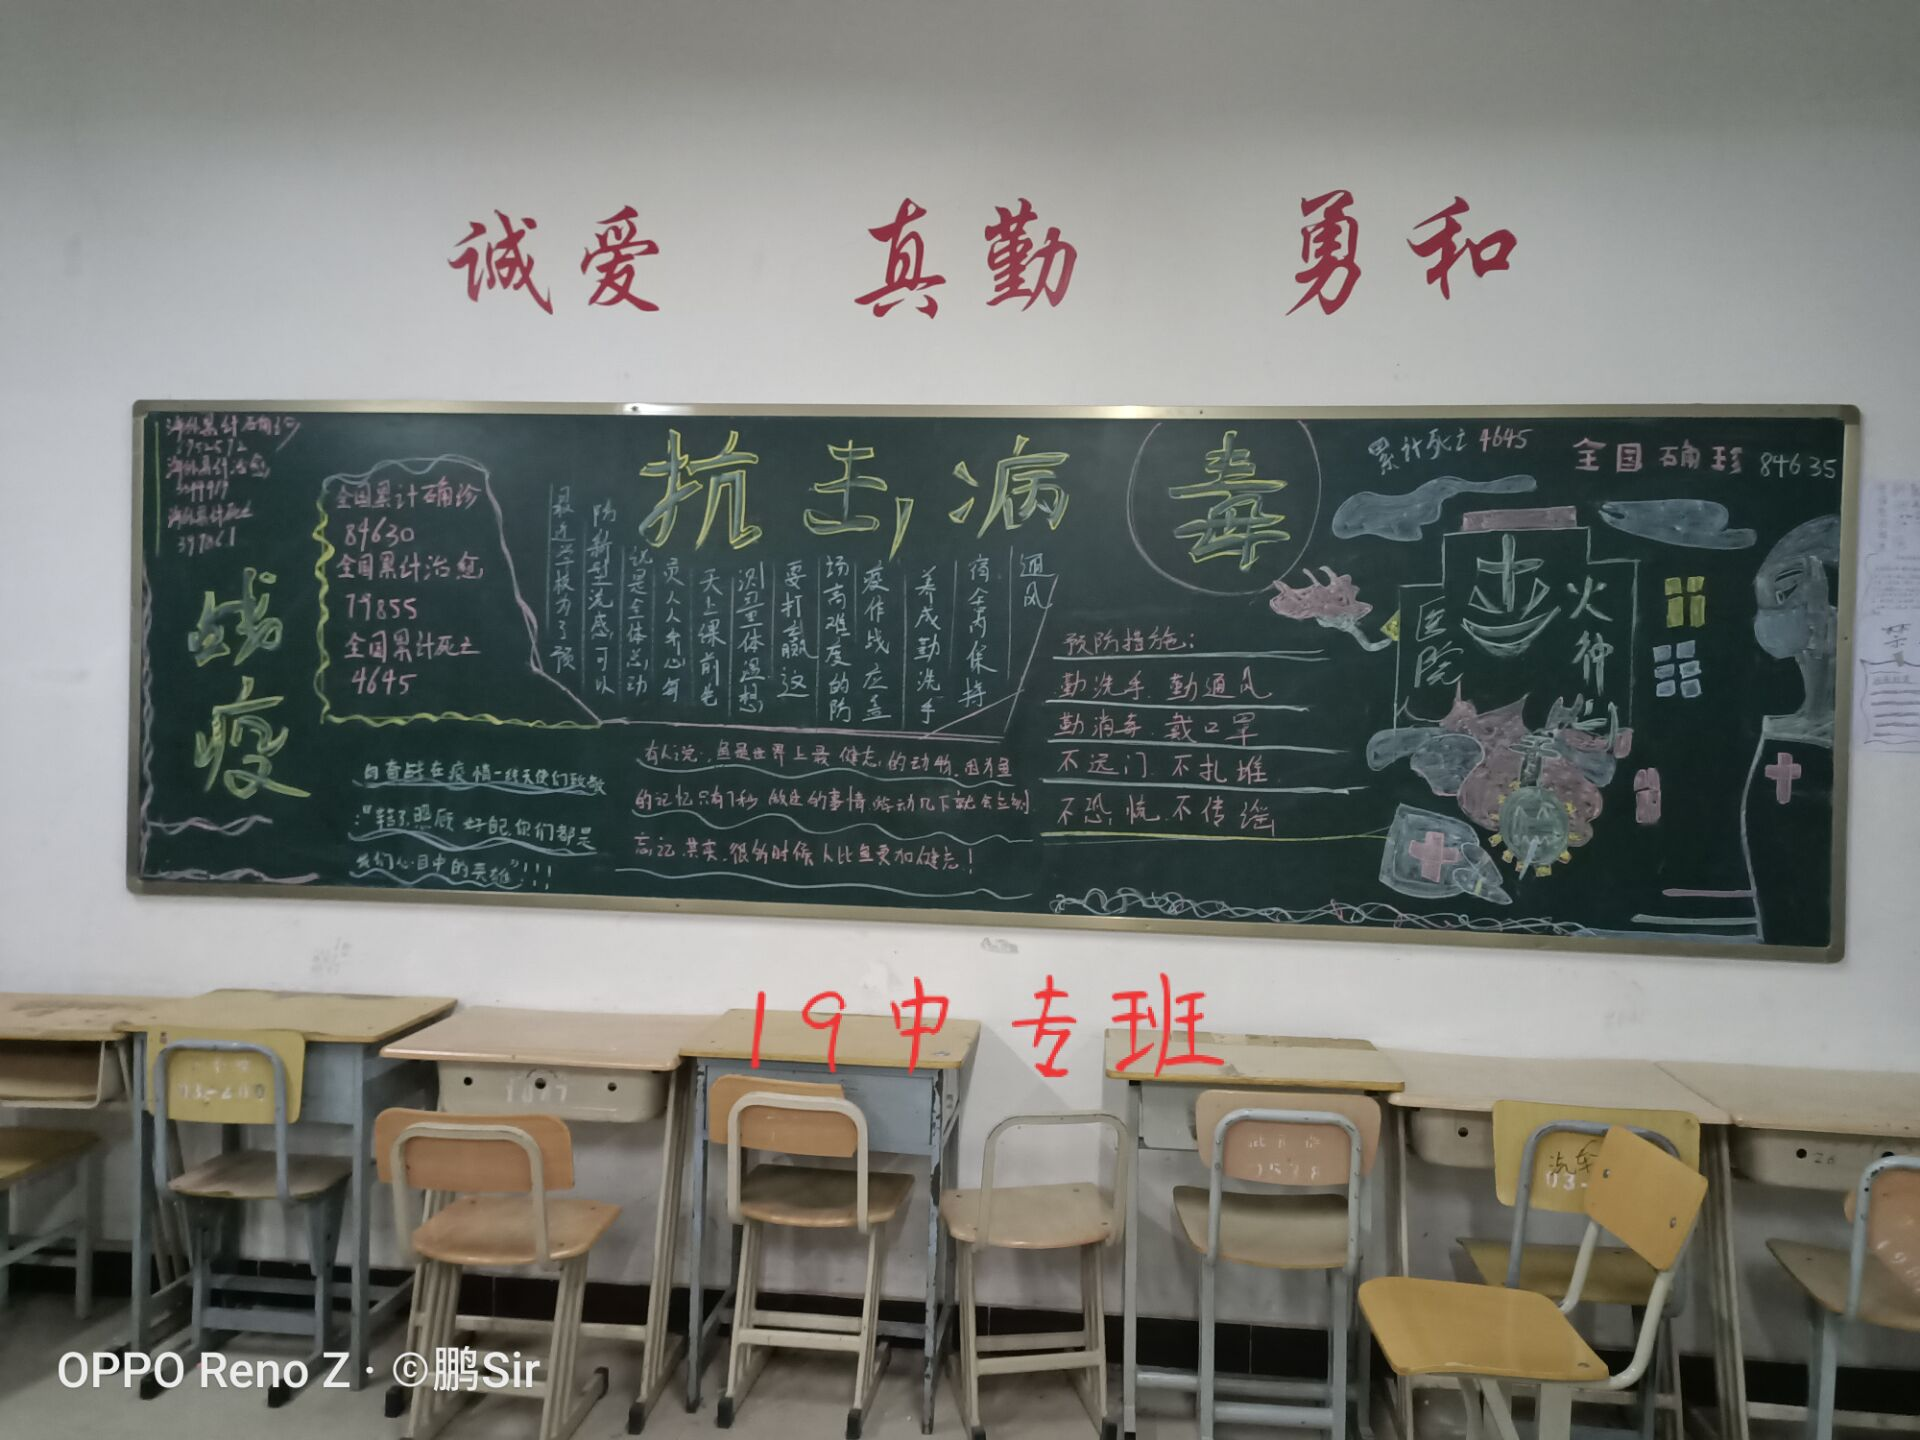 诚爱 真勤 勇和
抗击病毒
战疫
海外累计确诊
海外累计治愈
海外累计死亡
全国累计确诊
84630
全国累计治愈
79855
全国累计死亡
4645
最近学校为了预
防新型流感，可以
说是全体总动
员人人齐心每
天上课前先
测量体温想
要打赢这
场高难度的防
疫作战应益
养成勤洗手
宿舍内保持
通风
累计死亡4645
全国确珍84635
医院
火神山
预防措施：
勤洗手、勤通风
勤消毒、戴口罩
不远门、不扎堆
不恐慌、不传谣
向奋战在疫情一线天使们致敬
："辛苦了，照顾好自己，你们都是
我们心目中的英雄"！！！
有人说：鱼是世界上最健忘的动物，因为鱼
的记忆只有7秒
忘记其实，很多时候人比鱼更加健忘！
19中专班
03-200
1077
1578
汽车
03-
26
OPPO Reno Z · ©鹏Sir